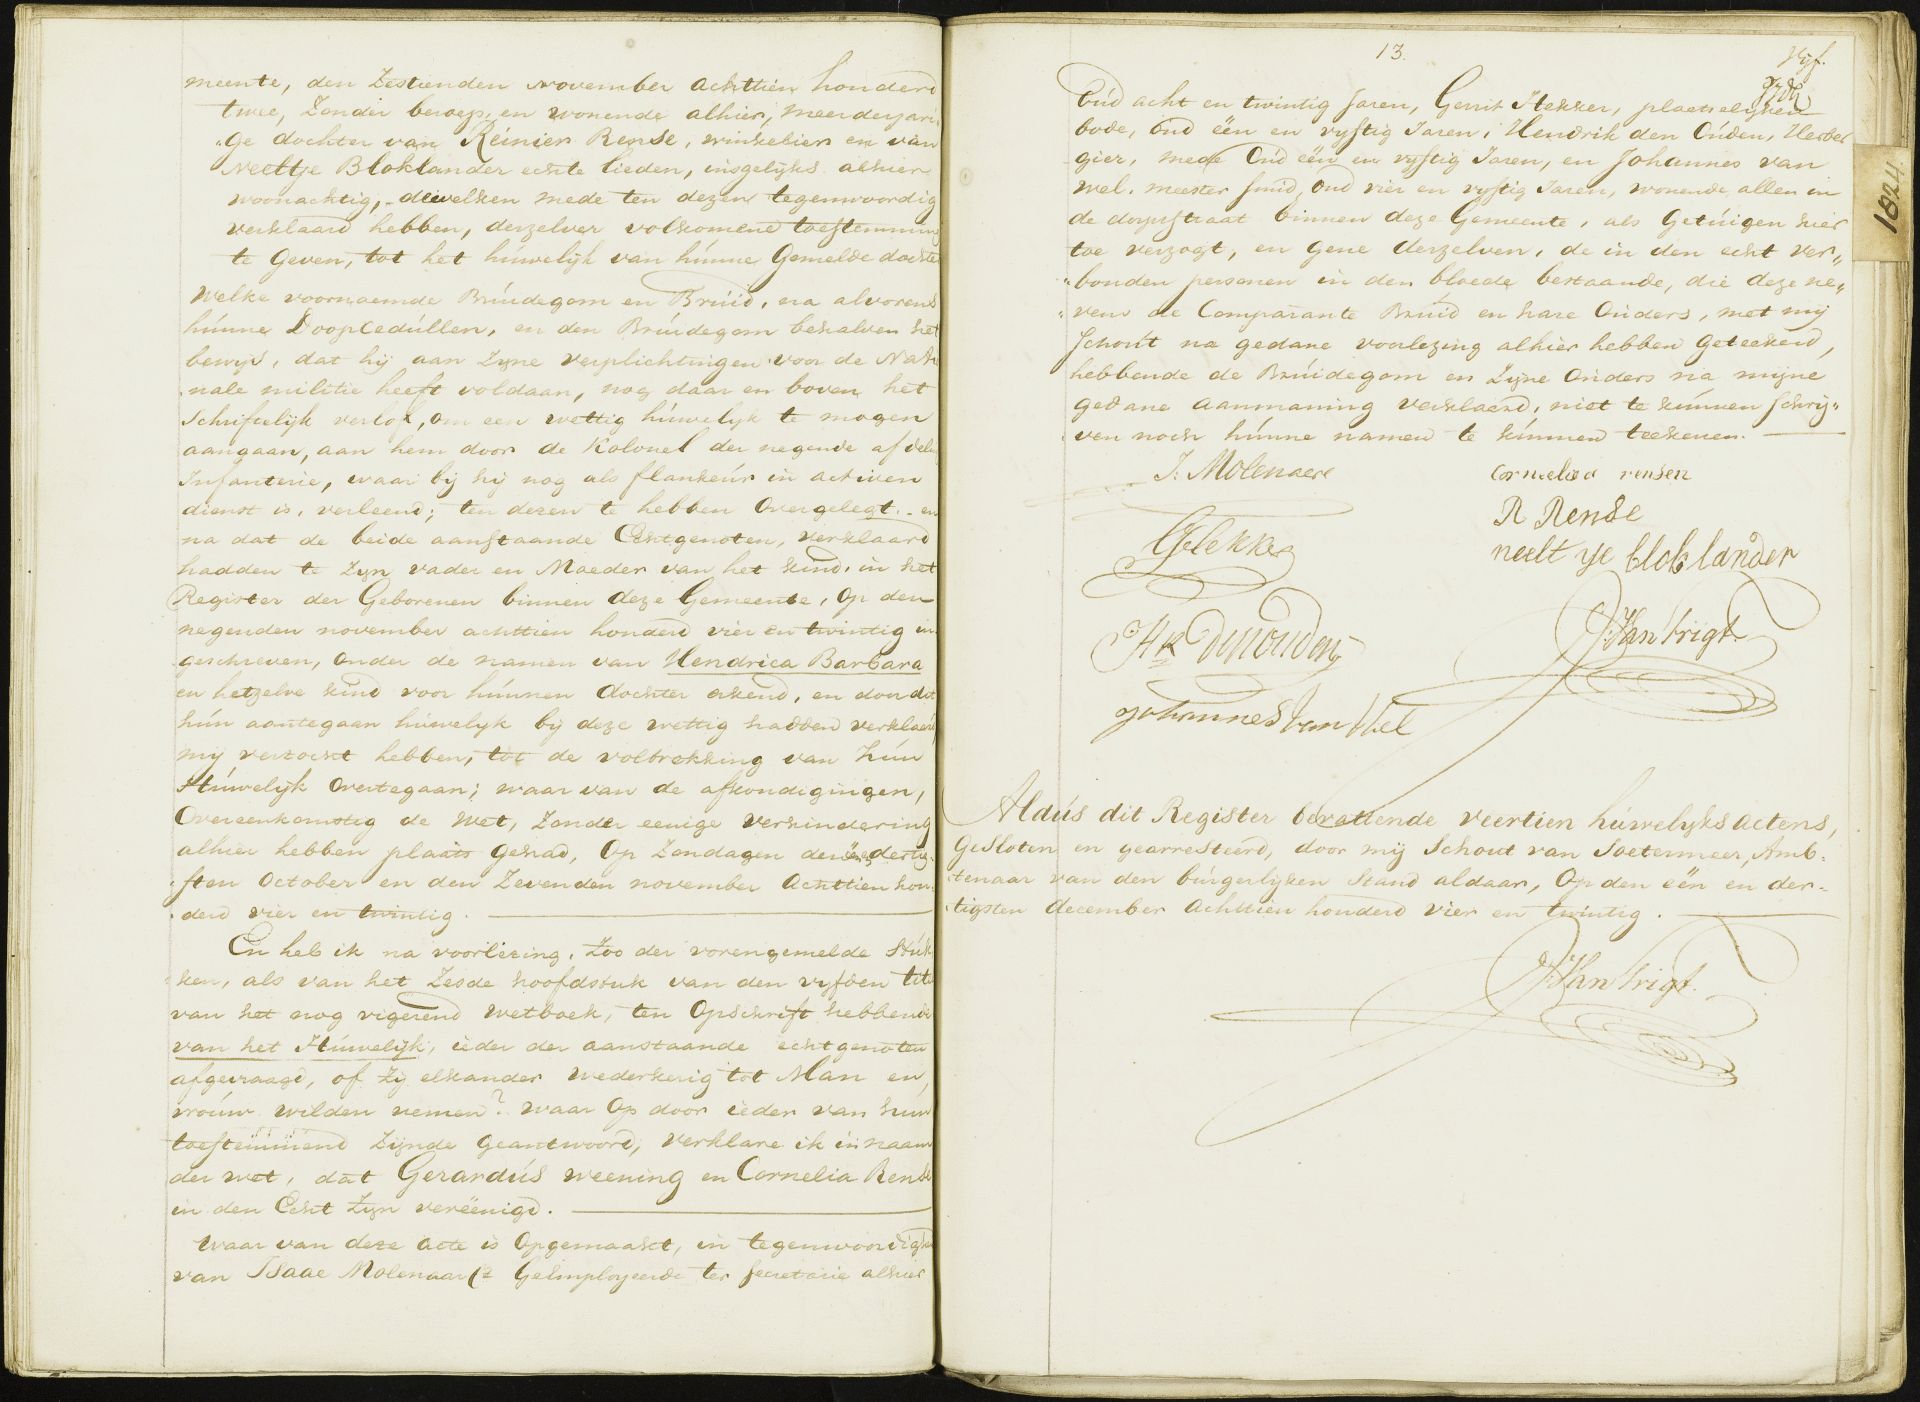 meente, den Zestienden november achttien honderd
twee, Zonder beroep, en wonende alhier, meerderjari„
„ge dochter van Reinier Rense, winkelier en van
Neeltje Bloklander echte lieden, insgelijks alhier
woonachtig, dewelken mede ten dezen tegenwoordig
verklaard hebben, derzelver volkomene toestemming
te Geven, tot het húwelijk van húnne Gemelde dochter
Welke voornoemde Brúidegom en Brúid, na alvorens
húnne Doopcedúllen, en den Brúidegom behalven het
bewijs, dat hij aan Zijne verplichtingen voor de Natio
nale militie heeft voldaan, nog daar en boven het
Schriftelijk verlof, om een wettig húwelijk te mogen
aangaan, aan hem door de Kolonel der negende afdeling
Infanterie, waar bij hij nog als flankeúr in activen
dienst is, verleend; ten dezen te hebben Overgelegt. en
na dat de beide aanstaande Echtgenoten, verklaard
hadden te Zijn vader en Moeder van het kind, in het
Register der Geborenen binnen deze Gemeente, Op den
negenden november achttien honderd vier en twintig in„
geschreven, Onder de namen van Hendrica Barbara
en hetzelve kind voor húnnen dochter erkend, en door dit
hún aantegaan húwelijk bij deze wettig hadden verklaard
mij verzocht hebben, tot de voltrekking van hún
Húwelijk Overtegaan; waar van de afkondigingen,
Overeenkomstig de wet, Zonder eenige verhindering
alhier hebben plaats gehad, Op Zondagen den één en dertig„
„sten October en den Zevenden november Achttien hon„
„derd vier en twintig.
En heb ik na voorlezing, Zoo der vorengemelde Stúk„
ken, als van het Zesde hoofdstuk van den vijfden titel
van het nog vigerend Wetboek, ten Opschrift hebbende
van het Húwelijk, ieder der aanstaande echtgenoten
afgevraagd, of Zij elkander wederkerig tot Man en
vroúw wilden nemen? waar Op door ieder van hun
toestemmend Zijnde geantwoord, verklare ik in naam
der wet, dat Gerardús weening en Cornelia Rense
in den Echt Zijn vereënigd.
Waar van deze acte is Opgemaakt, in tegenwoordigheid
van Isaac Molenaar Geëmployeerde ter secretarie alhier
13.
Vijf.
Oúd acht en twintig Jaren, Gerrit Hekker, plaatselijken
bode, oud één en vijftig Jaren, Hendrik den Oúden, Herber
gier, mede Oúd één en vijftig Jaren, en Johannes van
Wel, meester smid, oud vier en vijftig Jaren, wonende allen in
de dorpstraat binnen deze Gemeente, als Getúigen hier
toe verzogt, en gene derzelven, de in den echt ver„
„bonden personen in den bloede bestaande, die deze ne„
„vens de Comparante Brúid en hare Oúders, met mij
Schout na gedane voorlezing alhier hebben Geteekend,
hebbende de Brúidegom en Zijne Oúders na mijne
gedane aanmaning verklaard, niet te kúnnen schrij„
ven noch húnne namen te kúnnen teekenen.
I. Molenaar
Cornelia rensen
R Rense
GHekker
neelt ye bloklander
Hk den ouden
J: van Trigt.
Johannes van Wel
Aldús dit Register bevattende veertien húwelijks actens,
Gesloten en gearresteerd, door mij Schout van Soetermeer, Amb„
„tenaar van den búrgerlijken Stand aldaar, Op den één en der„
„tigsten december Achttien honderd vier en twintig.
J: van Trigt.
1824.